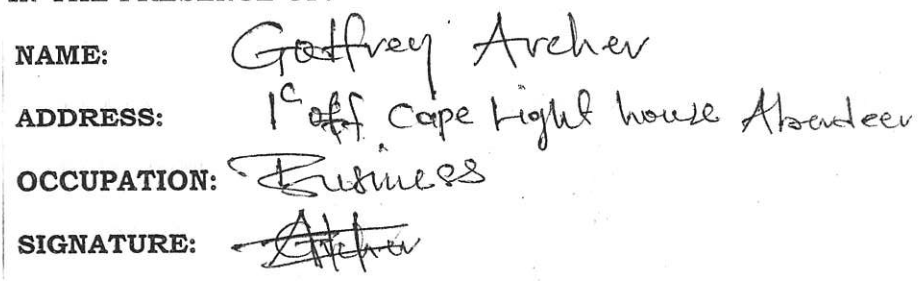 IN THE PRESENCE OF:
NAME: Gotfrey Archer
ADDRESS: 1c off Cape Light house Aberdeen
OCCUPATION: Business
SIGNATURE: Archer